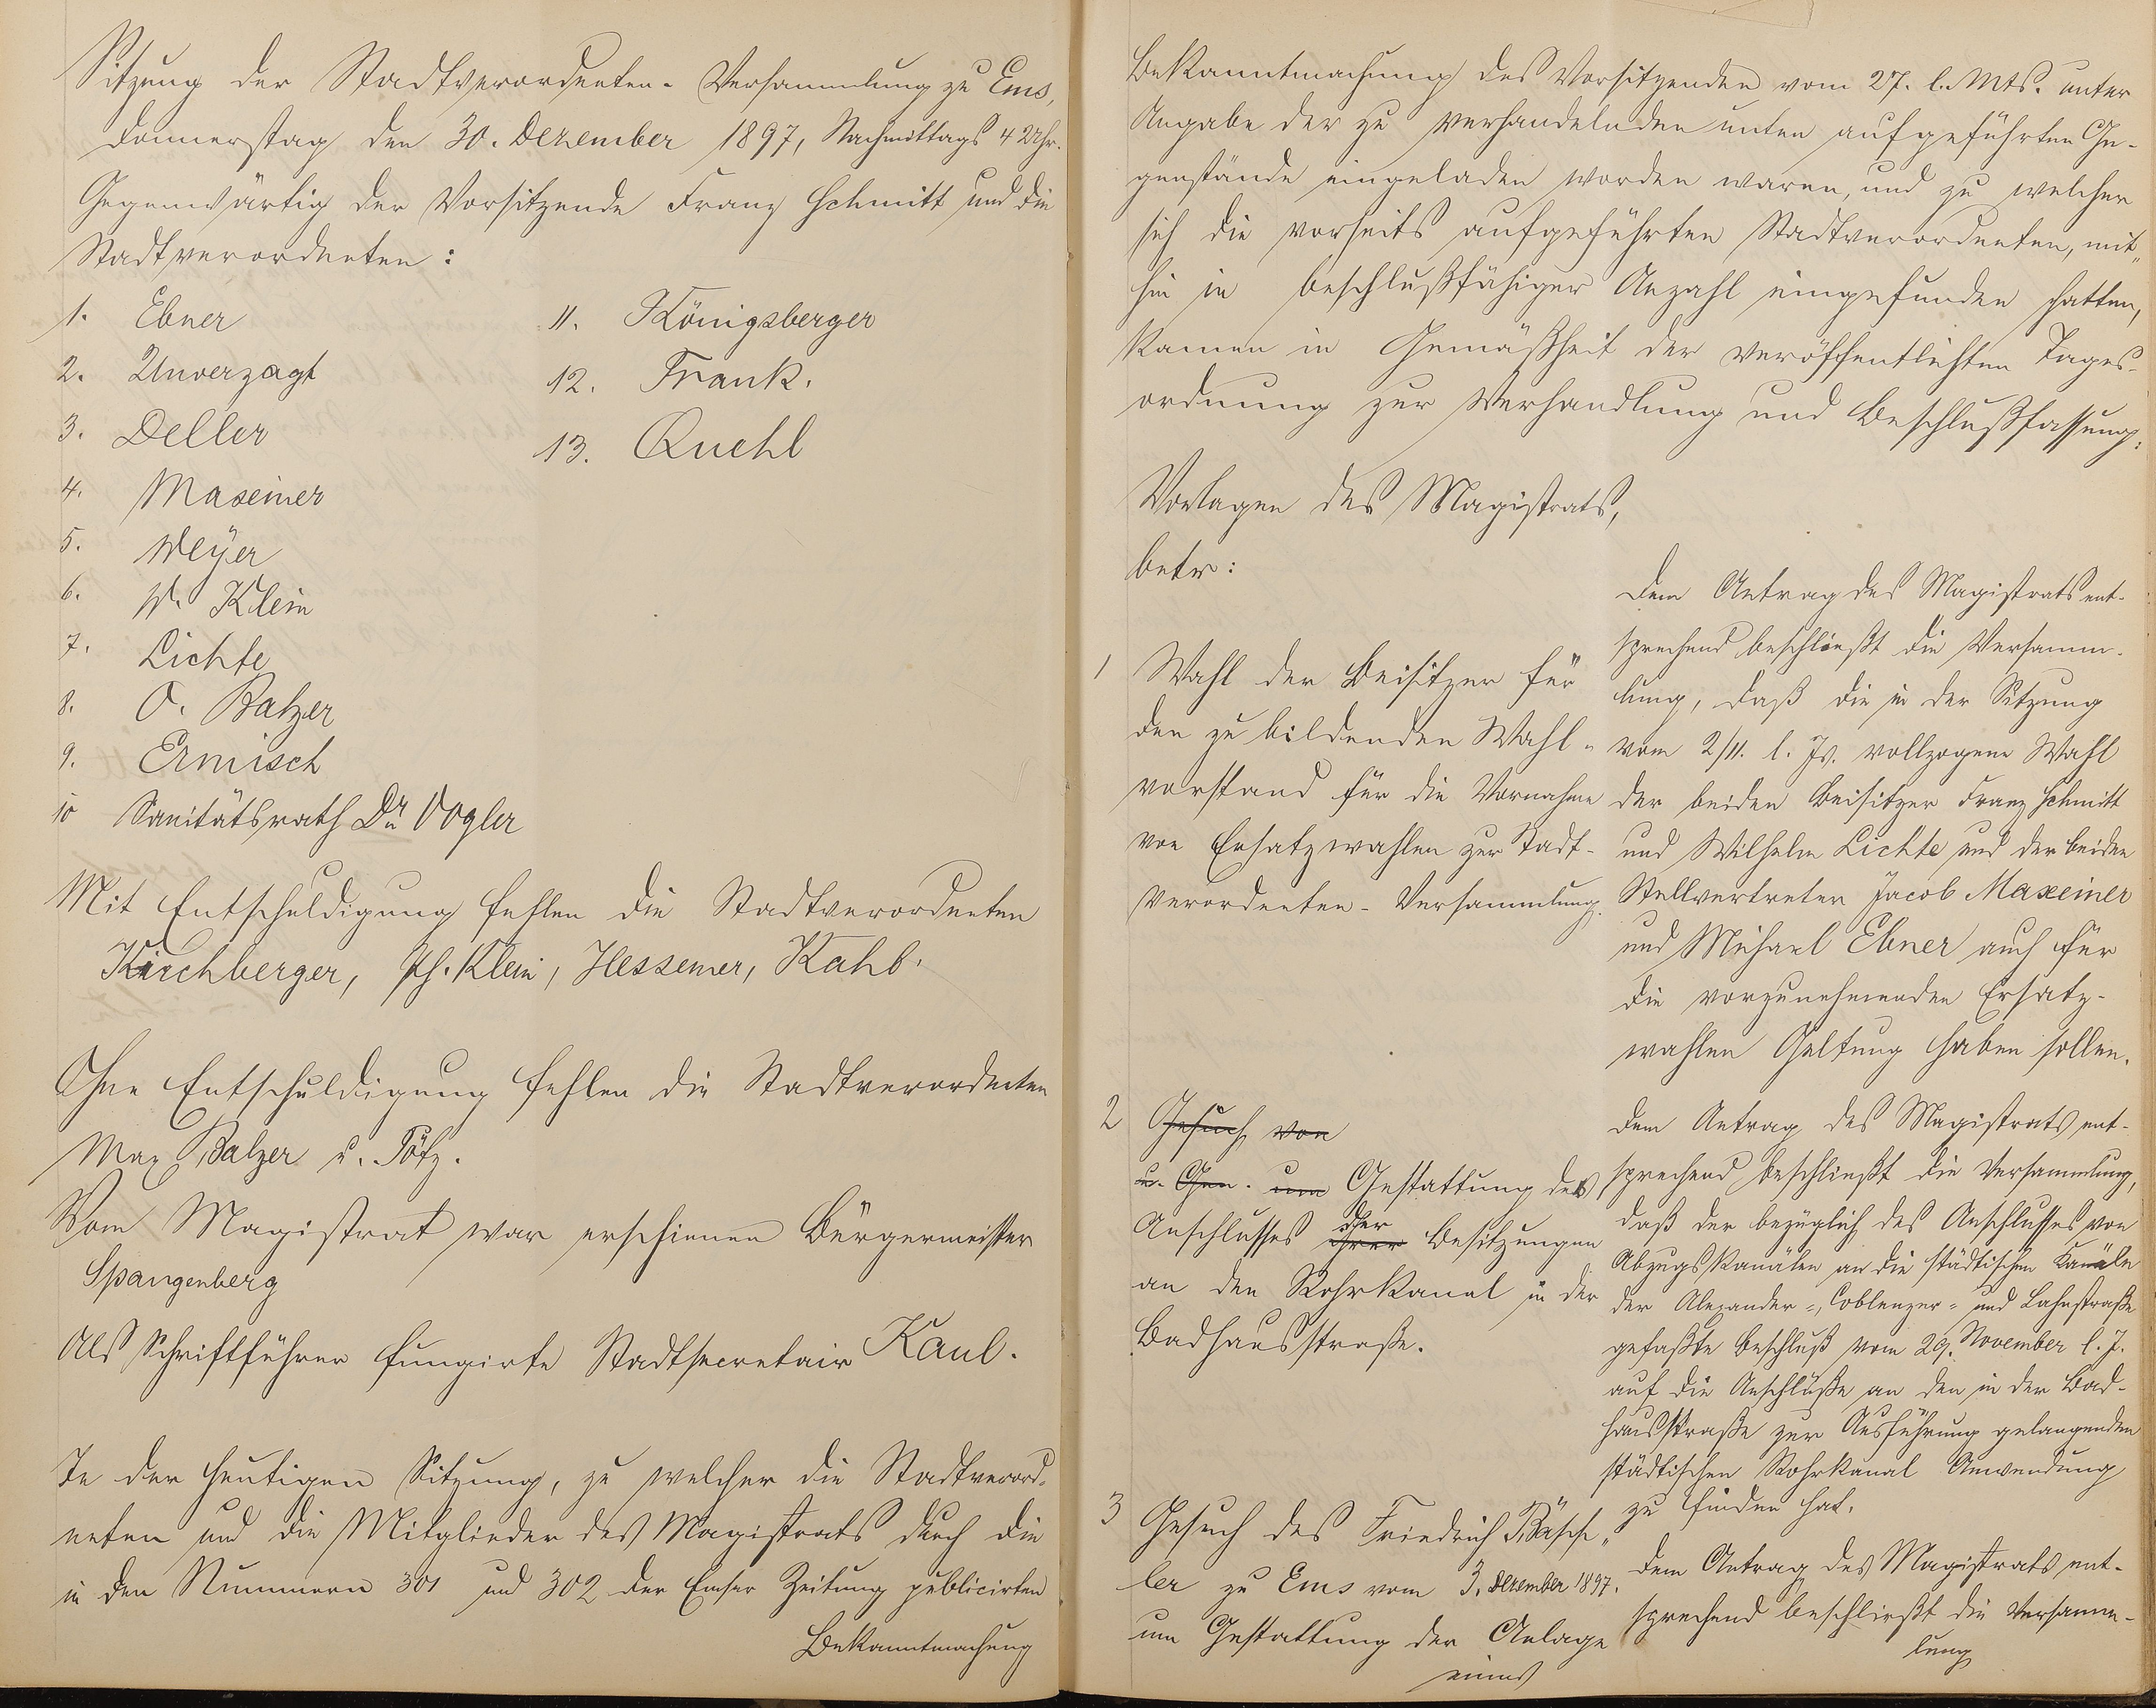 Sitzung der Stadtverordneten-Versammlung zu Ems,
Donnerstag den 30. Dezember 1897, Nachmittags 4 Uhr.
Gegenwärtig der Vorsitzende Franz Schmitt und die
Stadtverordneten:
1. Ebner
2. Unverzagt
3. Deller
4. Maxeiner
5. Meÿer
6. W. Klein
7. Lichte
8. O. Balzer
9. Ermisch
10 Sanitätsrath Dr Vogler
11. Königsberger
12. Frank.
13. Quehl
Mit Entschuldigung fehlen die Stadtverordneten
Kirchberger, Ph. Klein, Hessemer, Kahl.
Ohne Entschuldigung fehlen die Stadtverordneten
Max Balzer u. Götz.
Vom Magistrat war erschienen Bürgermeister
Spangenberg
Als Schriftführer fungirte Stadtsecretair Kaul.
In der heutigen Sitzung, zu welcher die Stadtverord-
neten und die Mitglieder des Magistrats durch die
in den Nummern 301 und 302 der Emser Zeitung publicirten
Bekanntmachung
Bekanntmachung des Vorsitzenden vom 27. l. Mts. unter
Angabe der zu verhandelnden unten aufgeführten Ge-
genstände eingeladen worden waren, und zu welcher
sich die vorseits aufgeführten Stadtverordneten, mit-
hin in beschlußfähiger Anzahl eingefunden hatten,
kamen in Gemäßheit der veröffentlichten Tages-
ordnung zur Verhandlung und Beschlußfassung:
Vorlagen des Magistrats,
betr:
1 Wahl der Beisitzer für
den zu bildenden Wahl-
vorstand für die Vornahme
von Ersatzwahlen zur Stadt-
verordneten-Versammlung.
Dem Antrag des Magistrats ent-
sprechend beschließt die Versamm-
lung, daß die in der Sitzung
vom 2/11. l. Js. vollzogene Wahl
der beiden Beisitzer Franz Schmitt
und Wilhelm Lichte und der beiden
Stellvertreter Jacob Maxeiner
und Michael Ebner auch für
die vorzunehmenden Ersatz-
wahlen Geltung haben sollen.
2 Gesuch von
u. Gen. um Gestattung des
Anschlusses ihrer der Besitzungen
an den Rohrkanal in der
Badhausstraße.
Dem Antrag des Magistrats ent-
sprechend beschließt die Versammlung,
daß der bezüglich des Anschlusses von
Abzugskanälen an die städtischen Kanäle
der Alexander-, Coblenzer- und Lahnstraße
gefaßte Beschluß vom 29. November l. J.
auf die Anschlüße an den in der Bad-
hausstraße zur Ausführung gelangenden
städtischen Rohrkanal Anwendung
zu finden hat.
3 Gesuch des Friedrich Bäppler
zu Ems vom 3. Dezember 1897.
um Gestattung der Anlage
eines
Dem Antrag des Magistrats ent-
sprechend beschließt die Versamm-
lung